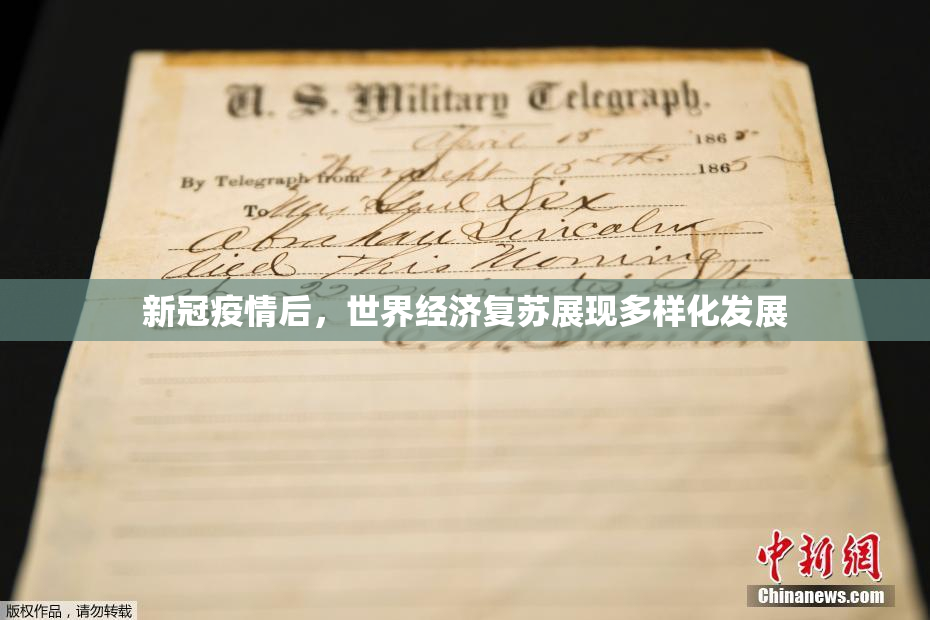 U. S. Military Telegraph.
April 15 1865
By Telegraph from War Dept 15th 1865
To Maj Genl Dix
Abraham Lincoln
died This Morning
at 22 minutes after
新冠疫情后，世界经济复苏展现多样化发展
E. M. Stanton
中新網
Chinanews.com
版权作品，请勿转载